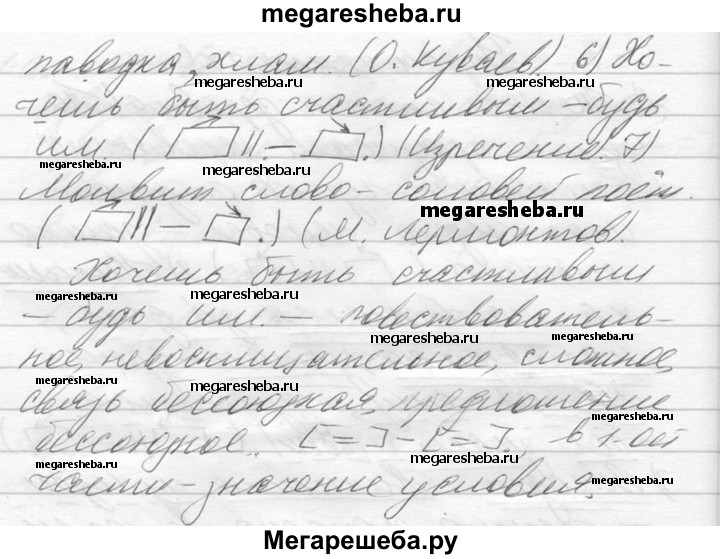 megaresheba.ru
паводка, хлам. (О. Куваев) 6) Хо-
megaresheba.ru
megaresheba.ru
чешь быть счастливым – будь
megaresheba.ru
им ( || – .) (Изречение. 7)
megaresheba.ru
megaresheba.ru
Молвит слово – соловей поёт.
megaresheba.ru
( || – .) (М. Лермонтов).
Хочешь быть счастливым
megaresheba.ru
megaresheba.ru
– будь им. – повествователь-
megaresheba.ru
megaresheba.ru
ное, невосклицательное, сложное,
megaresheba.ru
megaresheba.ru
связь бессоюзная, предложение
megaresheba.ru
бессоюзное. [=] – [=], в 1-ой
megaresheba.ru
megaresheba.ru
части – значение условия.
megaresheba.ru
megaresheba.ru
Мегарешеба.ру